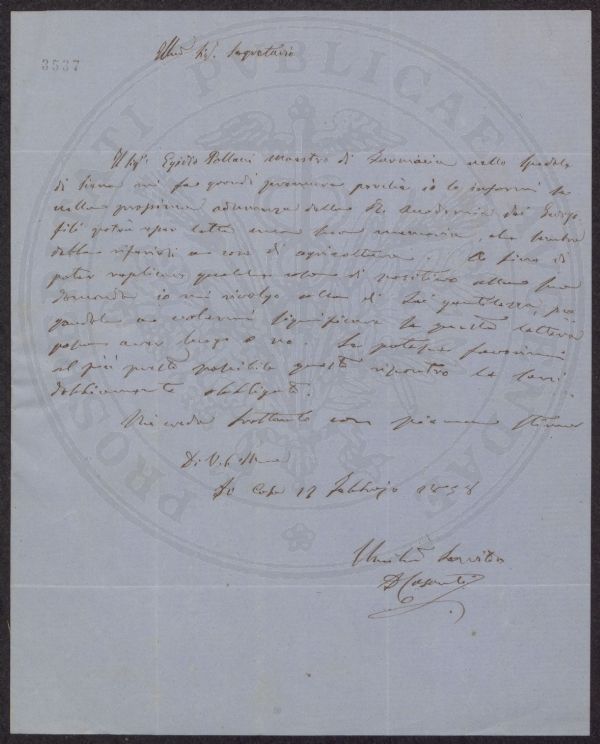 Illmo Sigr. Segretario
3537
Il Sigr. Egidio Pollacci Maestro di Farmacia nello Spedale
di Siena mi fa grandi premure perché io lo informi se
nella prossima adunanza della R. Accademia dei Georgo
fili potrà esser letta una sua memoria, che
a cose di agricoltura. A fine di
poter replicare qualche cosa di positivo alla sua
domanda io mi rivolgo alla di Lei gentilezza, pre
gandola a volermi significare se questa lettura
possa aver luogo o no. Se potesse favorirmi
al più presto possibile questo riscontro Le sarei
obbligato.
Mi creda frattanto con piena stima
Di V. S. Illma
Di Casa 17 Febbrajo 1858
Umilmo Servitor